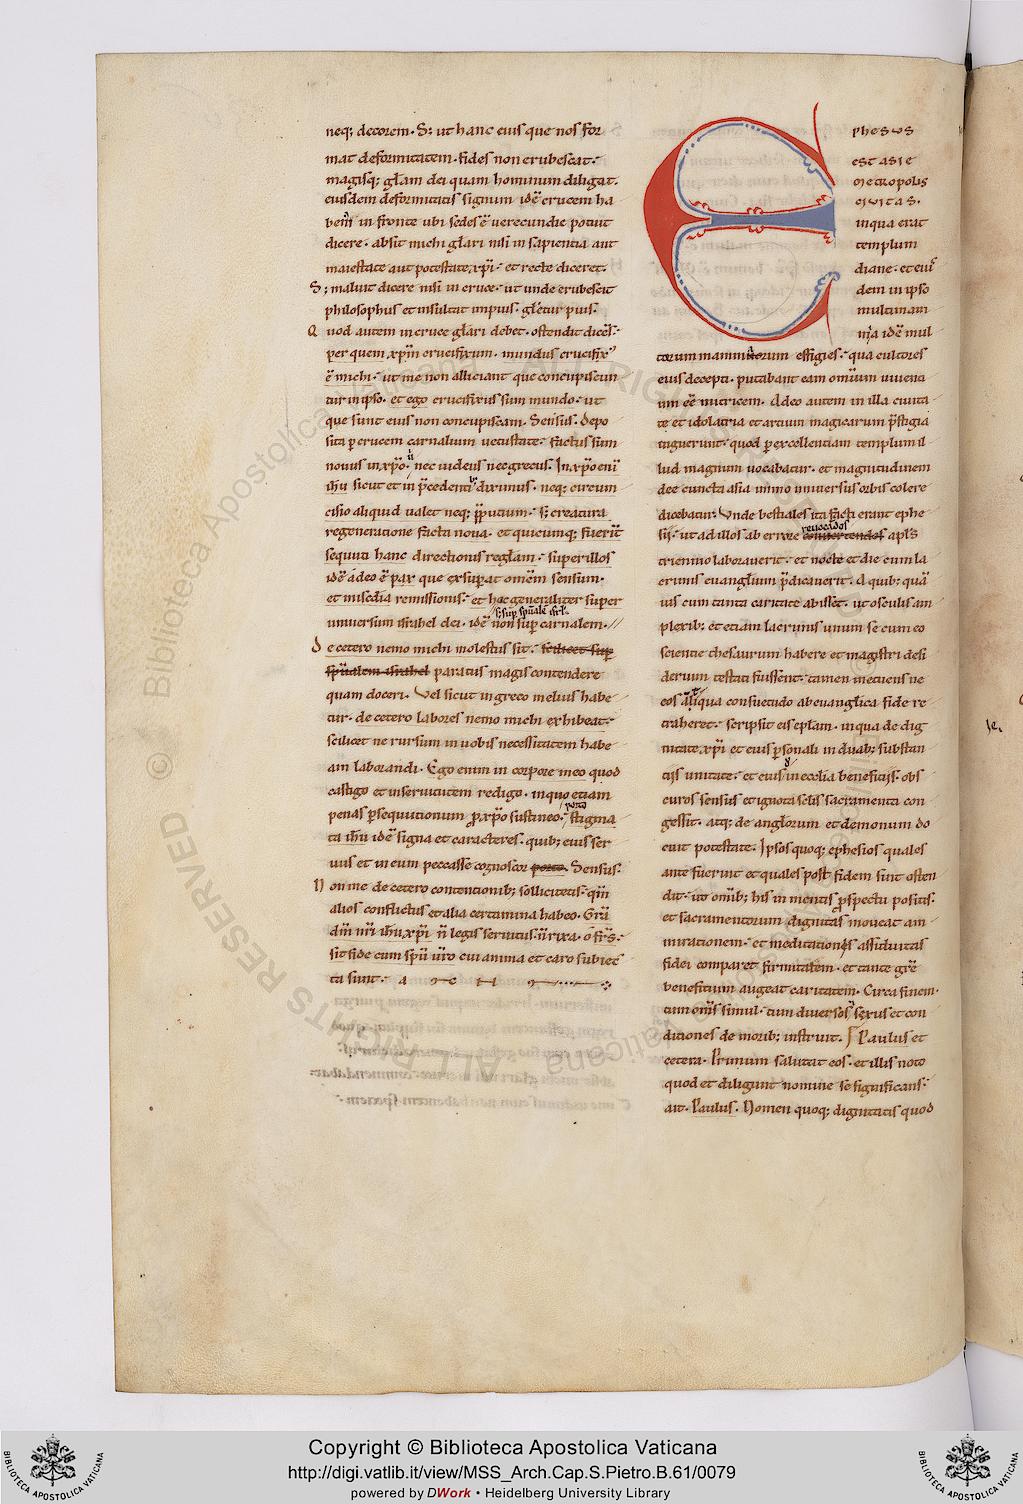 neq; decorem. S; ut hanc eius que nos for
mat deformitatem. fides non erubescat.
magisq; gl̃am dei quam hominum diligat.
eiusdem deformitatis signum idẽ crucem ha
bem̃ in fronte ubi sedes ẽ verecundie potuit
dicere. absit michi gl̃ari nisi in sapientia aut
maiestate aut potestate xp̃i. et recte diceret.
S; maluit dicere nisi in cruce. ut unde erubescit
philosophus et insultat impius. gl̃etur pius.
Quod autem in cruce gl̃ari debet. ostendit dicẽs.
per quem xp̃m crucifixum. mundus crucifix᾽
ẽ michi. ut me non alliciant que concupiscun
tur in ipso. et ego crucifixus sum mundo. ut
que sunt eius non concupiscam. Sensus. depo
sita p̱ crucem carnalium vetustate. factus sum
novus in xp̃o. nec iudeus nec grecus. In xp̃o eni
ih̃u sicut et in p̃cedentib; diximus. neq; circum
cisio aliquid valet neq; p̃putium. s; creatura
regeneratione facta nova. et quicumq; fuerit̃
sequuti hanc directionis regl̃am. super illos
idẽ a deo ẽ pax que exsup̱at om̃em sensum.
et misc̃dia remissionis. et hoc generaliter super
s; sup̱ sp̃uale isrl̃.
universum israhel dei. idẽ non sup̱ carnalem.
De cetero nemo michi molestus sit. scilicet sup̱
sp̃ualem israhel paratus magis contendere
quam doceri. Vel sicut in greco melius habe
tur. de cetero labores nemo michi exhibeat.
scilicet ne rursum in vobis necessitatem habe
am laborandi. Ego enim in corpore meo quod
castigo et in servitutem redigo. in quo etiam
porto
penas p̱sequutionum p̱ xp̃o sustineo. stigma
ta ih̃u idẽ signa et caracteres. quib; eius ser
vus et in eum peccasse cognoscor porto. Sensus.
Non me de cetero contentionib; sollicitetis. qm̃
alios conflictus et alia certamina habeo. Gr̃a
dm̃ nr̃i ih̃u xp̃i ñ legis servitus ñ rixa. o fr̃s.
sit fide cum sp̃u vr̃o cui anima et caro subiec
ta sunt. A M E N
Phesus
est asie
metropolis
civitas.
in qua erat
templum
diane. et ei᾽
dem in ipso
multimam
mia idẽ mul
torum mammarum effigies. qua cultores
eius decepti. putabant eam om̃ium viventi
um eẽ nutricem. Adeo autem in illa civita
te et idolatria et artium magicarum p̃stigia
viguerunt. quod p̱ excellentiam templum il
lud magnum vocabatur. et magnitudinem
dee cuncta asia immo universus orbis colere
dicebatur. Unde bestiales ita facti erant ephe
revocãdos
sii. ut ad illos ab errore convertendos apl̃s
triennio laboraverit. et nocte et die cum la
crimis evangl̃ium p̃dicaverit. A quib; quã
vis cum tanta caritate abisset. ut osculis am
plexib; et etiam lacrimis unum se cum eo
scientie thesaurum habere et magistri desi
derium testati fuissent. tamen metuens ne
eos aliqua consuetudo ab evangelica fide re
traheret. scripsit eis eplam. in qua de dig
nitate xp̃i et eius p̱sonali in duab; substan
tiis unitate. et eius in ecclia beneficiis. obs
curos sensus et ignota solis sacramenta con
gessit. atq; de angl̃orum et demonum do
cuit potestate. Ipsos quoq; ephesios quales
ante fuerint et quales post fidem sint osten
dit. ut om̃ib; his in mentis p̱spectu positis.
et sacramentorum dignitas moveat am
mirationem. et meditationis assiduitas
fidei comparet firmitatem. et tante gr̃e
beneficium augeat caritatem. Circa finem.
cum om̃s simul. tum diversos sexus et con
ditiones de morib; instruit. Paulus et
cetera. Primum salutat eos. et illis noto
quod et diligunt nomine se significans.
ait. Paulus. Nomen quoq; dignitatis quod
Copyright © Biblioteca Apostolica Vaticana
http://digi.vatlib.it/view/MSS_Arch.Cap.S.Pietro.B.61/0079
powered by DWork • Heidelberg University Library